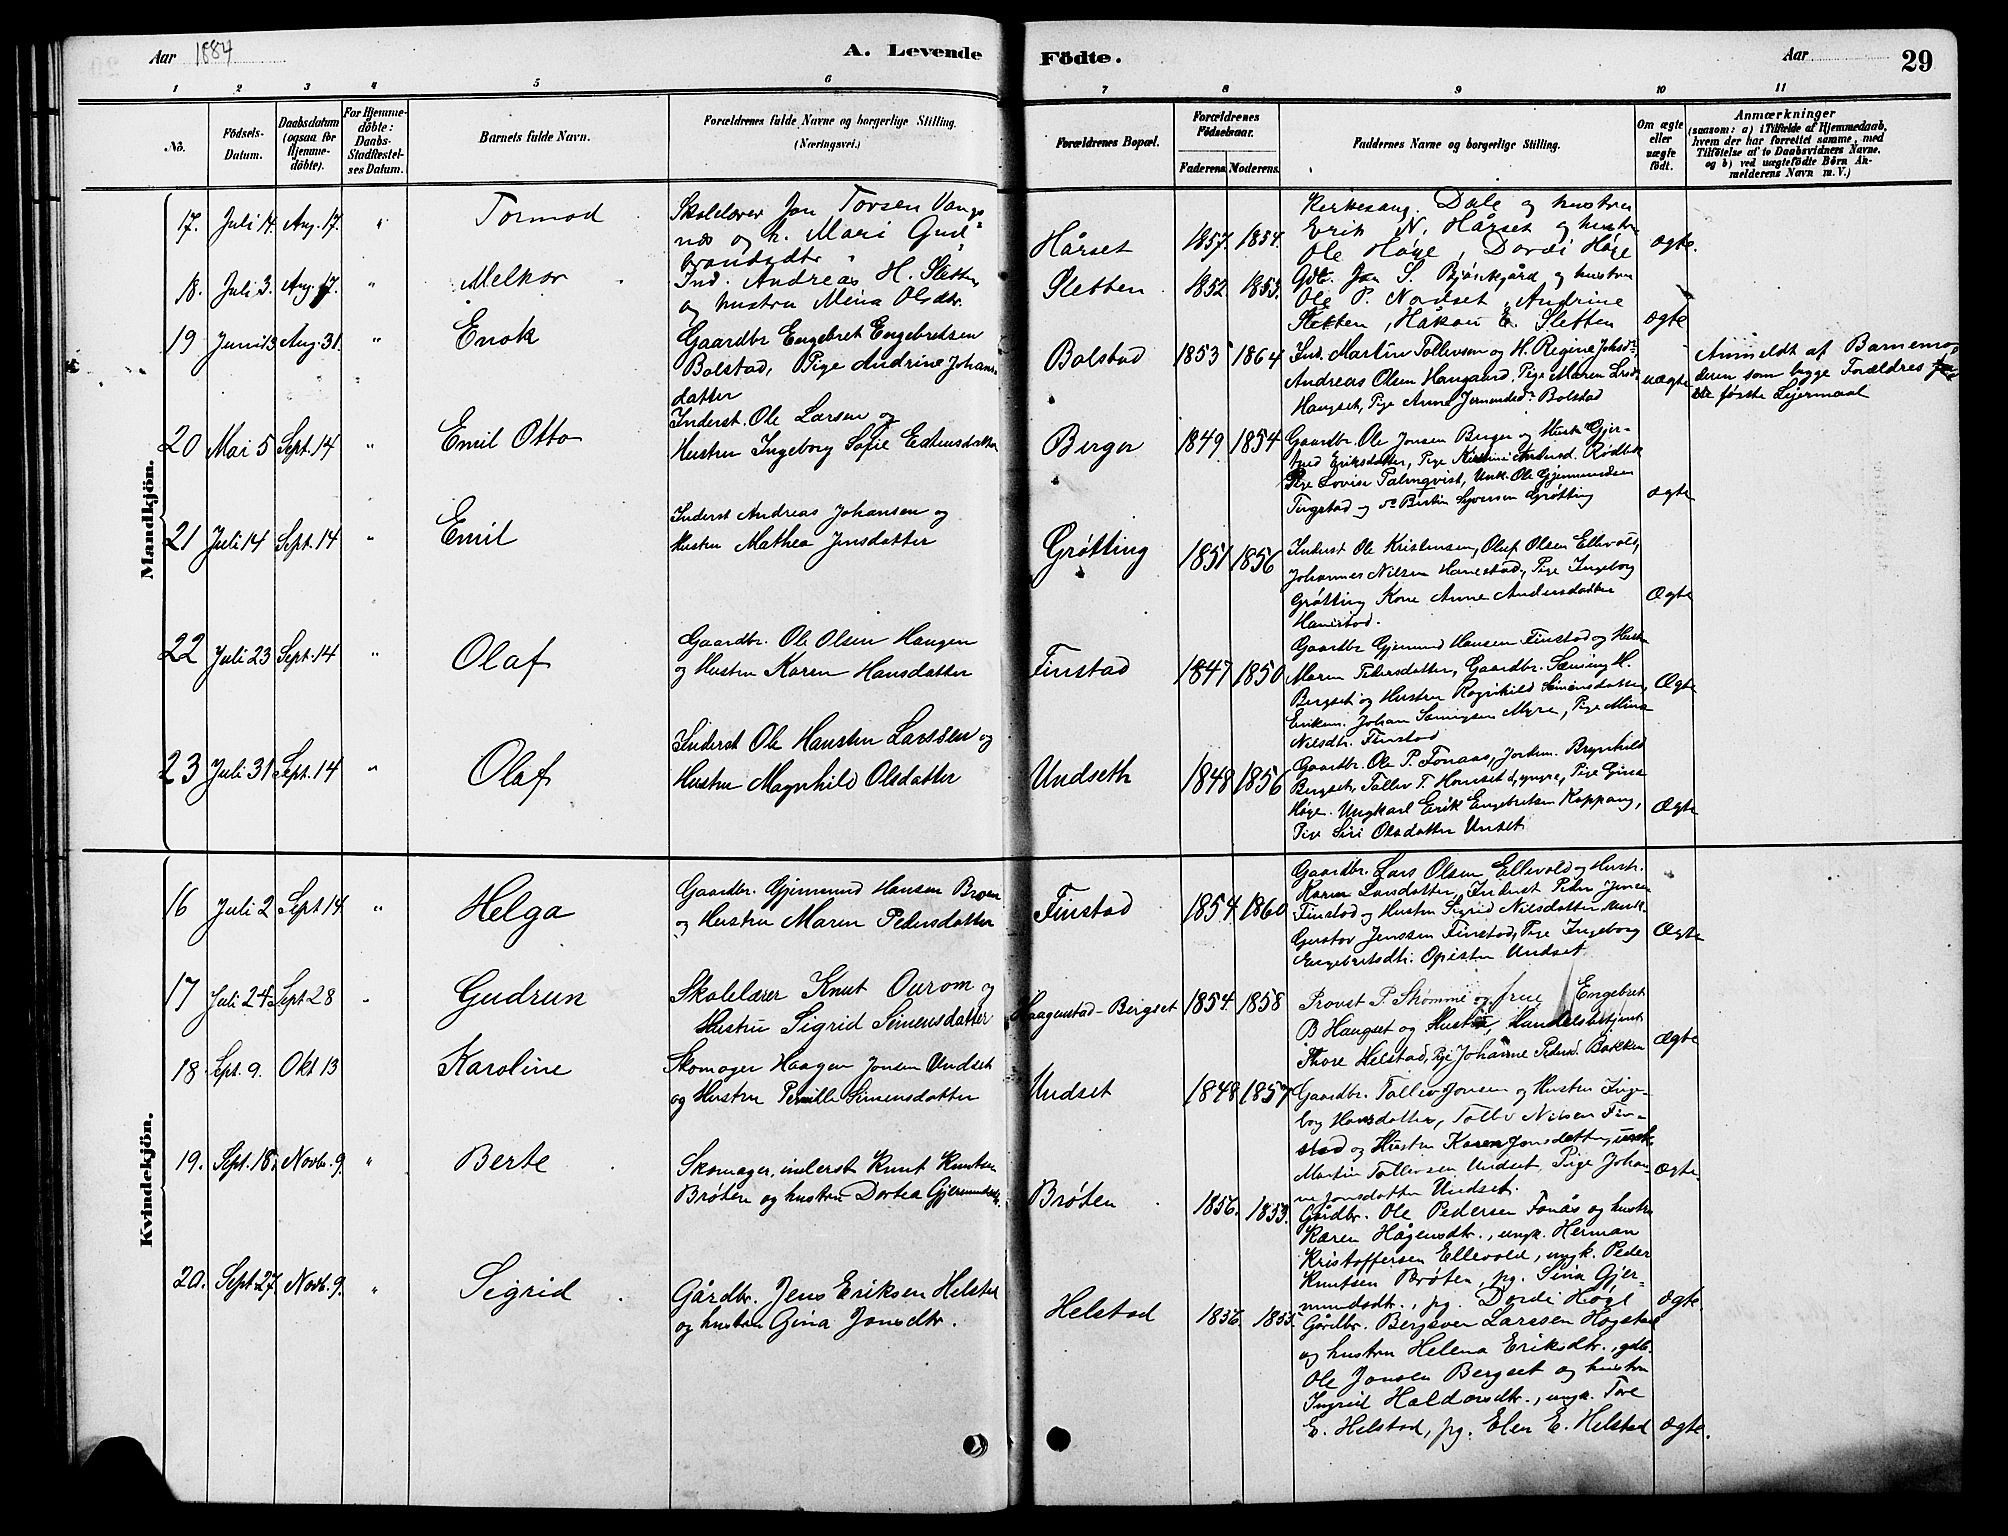 Aar 1884
A. Levende Födte.
Aar
29
1 2 3 4 5 6 7 8 9 10 11
No.
Födsels-Datum.
Daabsdatum (ogsaa for Hjemme-döbte).
For Hjemme-döbte: Daabs-Stadfæstel-ses Datum.
Barnets fulde Navn.
Forældrenes fulde Navne og borgerlige Stilling. (Næringsvei.)
Forældrenes Bopæl.
Forældrenes Födselsaar.
Faderens. Moderens.
Faddernes Navne og borgerlige Stilling.
Om ægte eller uægte födt.
Anmærkninger
(saasom: a) i Tilfælde af Hjemmedaab, hvem der har forrettet samme, med Tilföielse af to Daabsvidners Navne, og b) ved uægtefödte Börn An-melderens Navn m. V.)
Mandkjön.
17. Juli 14. Aug. 17. " Tormod
Skolelærer Jon Torsen Vangs-
næs og h. Mari Gud-
brandsdtr
Hårset 1857. 1854.
Kirkesang. Dale og hustru
Erik N. Hårset og hustr.
Ole Höge, Dordi Höge
ægte.
18. Juli 3. Aug. 17. " Melkor
Ind. Andreas H. Sletten
og hustru Mina Olsdtr.
Sletten 1852. 1853.
Gdb. Jon S. Bjørkgård og hustru
Ole P. Nordset, Andrine
Sletten, Håkon E. Sletten
ægte
19 Juni 13 Aug. 31. " Enok
Gaardbr Engebret Engebretsen
Bolstad, Pige Andrine Johans-
datter
Bolstad 1853 1864
Ind. Martin Tollevsen og H. Regine Johsd.
Andreas Olsen Haugaard, Pige Maren Larsd.
Haugset, Pige Anne Jermundsd. Bolstad
uægte
Anmeldt af Barnemo-
deren som begge Forældres
første Lejermaal
20 Mai 5 Sept. 14 " Emil Otto
Inderst. Ole Larsen og
Hustru Ingeborg Sofie Estensdatter
Berger 1849 1854
Gaardbr. Ole Jonsen Berger og Hust. Gjer-
trud Eriksdatter, Pige Kristine Andersd. Rødbæk
Pige Lovise Palmqvist, Unk. Ole Gjermundsen
Tingstad og Bertin Syversen Grøtting
ægte
21 Juli 14 Sept. 14 " Emil
Inderst Andreas Johansen og
Hustru Mathea Jensdatter
Grøtting 1851 1856
Inderst Ole Kristensen, Oluf Olsen Ellevold,
Johannes Nilsen Hanestad, Pige Ingeborg
Grøtting Kone Anne Andersdatter
Hanestad.
Ægte
22 Juli 23 Sept. 14 " Olaf
Gaardbr. Ole Olsen Haugen
og Hustru Karen Hansdatter
Finstad 1847 1850
Gaardbr Gjermund Hansen Finstad og Hustru
Maren Pedersdatter, Gaardbr. Sæming H.
Bergset og Hustru Ragnhild Simensdatter,
Enkem. Johan Sæmingsen Myre, Pige Mina
Nilsdtr. Finstad
Ægte
23 Juli 31 Sept. 14 " Olaf
Inderst Ole Hansten Larssen og
Hustru Magnhild Olsdatter
Undseth 1848 1856
Gaardbr. Ole P. Fonaas, Jordem. Brynhild
Bergset, Tollev T. Hornset d. yngre, Pige Gina
Høge. Ungkarl Erik Engebretsen Koppang,
Pige Siri Olsdatter Unset
Ægte
Kvindekjön.
16 Juli 2 Sept 14 " Helga
Gaardbr. Gjermund Hansen Broen
og Hustru Maren Pedersdatter
Finstad 1854 1860
Gaardbr. Lars Olsen Ellevold og Hustr.
Karen Larsdatter, Inderst Peder Jensen
Finstad og Hustru Sigrid Nilsdatter Unk.
Gustav Jenssen Finstad, Pige Ingeborg
Engebretsdtr. Opisten Undset
Ægte
17 Juli 24 Sept 28 " Gudrun
Skolelærer Knut Ourom og
Hustru Sigrid Simensdatter
Haagenstad-Bergset 1854. 1858
Provst P. Strømme og frue, Engebret
B Haugset og Hustru, Handelsbetjent
Thore Helstad, Pige Johanne Pedersd. Bakken
Ægte
18 Sept. 9. Okt 13 Karoline
Skomager Haagen Jonsen Undset
og Hustru Pernille Simensdatter
Undset 1848 1857
Gaardbr. Tollev Jonsen og Hustru Inge-
borg Hansdatter, Tollv Nilsen Fin-
stad og Hustru Karen Jonsdatter, unk.
Martin Tollevsen Undset, Pige Johan-
ne Jonsdatter Undset.
Ægte
19. Sept. 18. Novb. 9. " Berte
Skomager, inderst Knut Knutsen
Brøten og hustru Dortea Gjermundsdtr.
Brøten 1856. 1853.
Gårdbr. Ole Pedersen Fonås og hustru
Karen Hågensdtr., ungk. Herman
Kristoffersen Ellevold, ungk. Peder
Knutsen Brøten, pg. Sina Gjer-
mundsdtr., pg. Dordi Høge
ægte
20. Sept. 27. Novb. 9. " Sigrid
Gårdbr. Jens Eriksen Helstad
og hustru Gina Jonsdtr.
Helstad 1856. 1855.
Gårdbr. Bergsven Larssen Hogstad
og hustru Helena Eriksdtr., gdb.
Ole Jonsen Bergset og hustru
Ingrid Haldorsdtr., ungk. Tore
E. Helstad, pg. Elen E. Helstad
ægte.